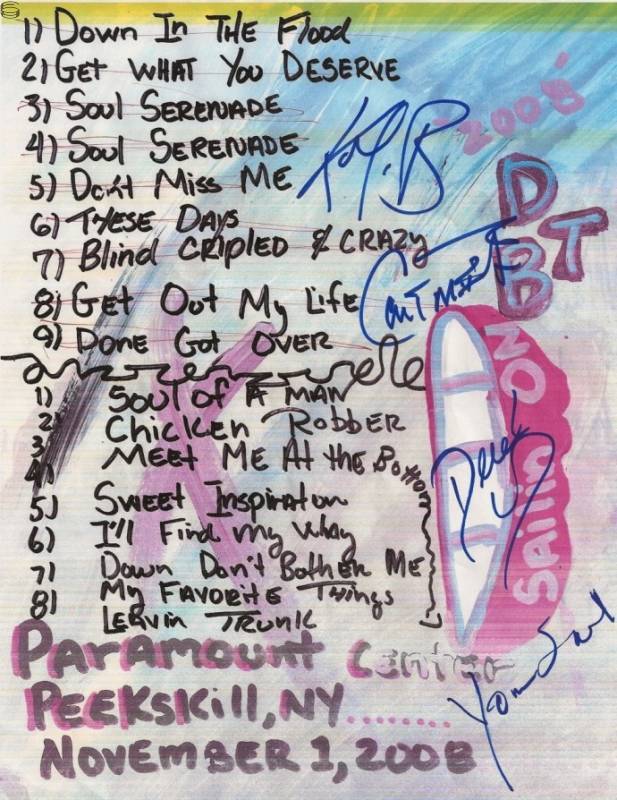 1) Down In The Flood
2) Get What You Deserve
3) Soul Serenade
4) Soul Serenade
5) Don't Miss Me
6) These Days
7) Blind Cripled & Crazy
8) Get Out My Life
9) Done Got Over
'2008'
DTB
Sailin On
1) Soul of A Man
2) Chicken Robber
3) Meet Me At the Bottom
4)
5) Sweet Inspiration
6) I'll Find My Way
7) Down Don't Bother Me
8) My Favorite Things
Leavin Trunk
Derek
Paramount Center
Peekskill, NY........
November 1, 2008